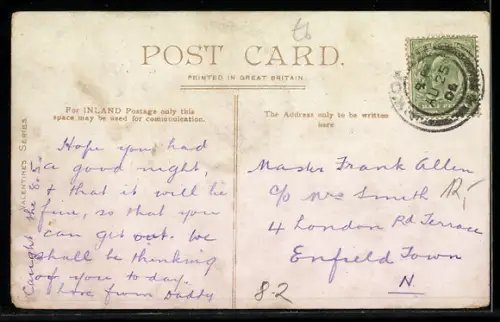 POST CARD.
PRINTED IN GREAT BRITAIN.
For INLAND Postage only this
space may be used for communication.
The Address only to be written
here
VALENTINES SERIES
Hope you had
a good night,
& that it will be
fine, so that you
can get out. We
shall be thinking
of you to-day.
Love from Daddy
Caught the 8.5.
Master Frank Allen
c/o Mrs Smith
4 London Rd Terrace
Enfield Town
N.
8-2